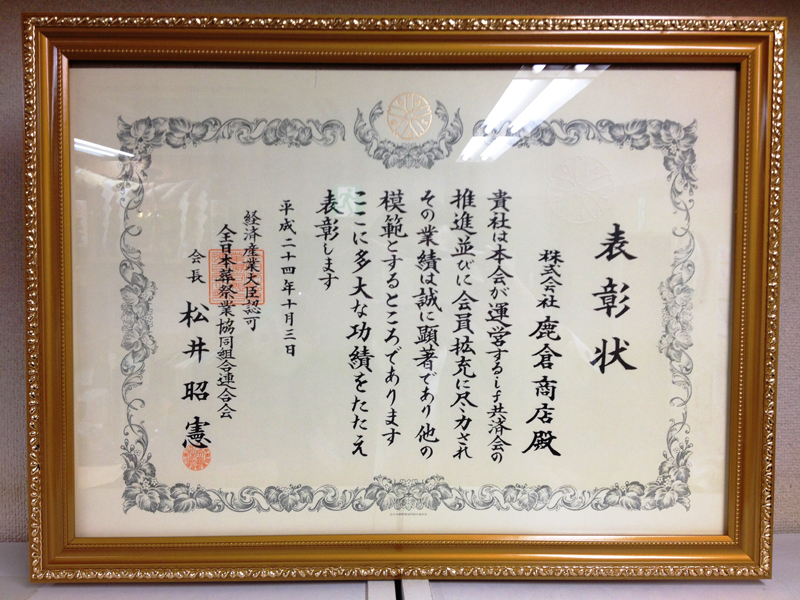 表彰状
株式会社 鹿倉商店殿
貴社は本会が運営するif共済会の
推進並びに会員拡充に尽力され
その業績は誠に顕著であり他の
模範とするところであります
ここに多大な功績をたたえ
表彰します
平成二十四年十月三日
経済産業大臣認可
全日本葬祭業協同組合連合会
会長 松井昭憲